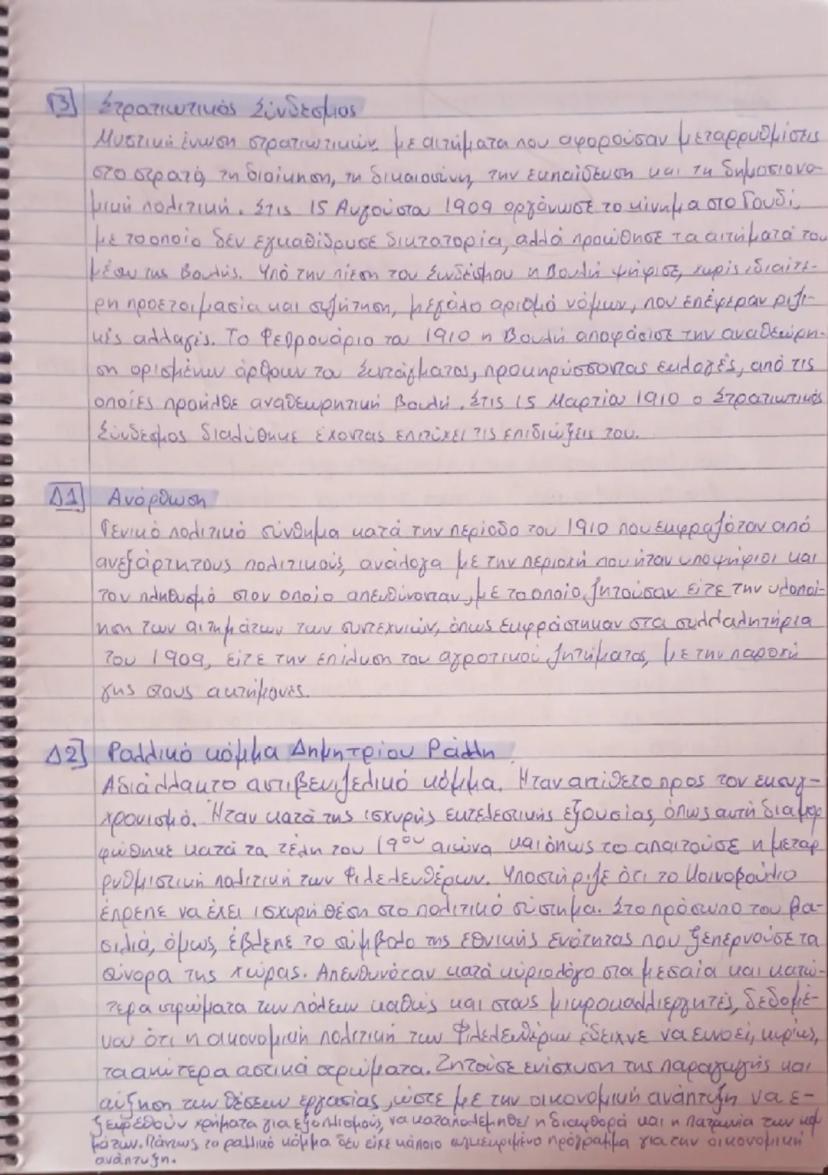 Γ3] Στρατιωτικός Σύνδεσμος
Μυστική ένωση στρατιωτικών, με αιτήματα που αφορούσαν μεταρρυθμίσεις
στο στρατό, τη διοίκηση, τη δικαιοσύνη, την εκπαίδευση και τη δημοσιονο-
μική πολιτική. Στις 15 Αυγούστου 1909 οργάνωσε το κίνημα στο Γουδί,
με το οποίο δεν εγκαθίδρυσε δικτατορία, αλλά προώθησε τα αιτήματά του
μέσω της Βουλής. Υπό την πίεση του Συνδέσμου η Βουλή ψήφισε, χωρίς ιδιαίτε-
ρη προετοιμασία και συζήτηση, μεγάλο αριθμό νόμων, που επέφεραν ριζι-
κές αλλαγές. Το Φεβρουάριο του 1910 η Βουλή αποφάσισε την αναθεώρη-
ση ορισμένων άρθρων του Συντάγματος, προκηρύσσοντας εκλογές, από τις
οποίες προήλθε αναθεωρητική Βουλή. Στις 15 Μαρτίου 1910 ο Στρατιωτικός
Σύνδεσμος διαλύθηκε έχοντας επιτύχει τις επιδιώξεις του.
Δ1] Ανόρθωση
Γενικό πολιτικό σύνθημα κατά την περίοδο του 1910 που εκφραζόταν από
ανεξάρτητους πολιτικούς, ανάλογα με την περιοχή που ήταν υποψήφιοι και
τον πληθυσμό στον οποίο απευθύνονταν, με το οποίο ζητούσαν είτε την υλοποί-
ηση των αιτημάτων των συντεχνιών, όπως εκφράστηκαν στα συλλαλητήρια
του 1909, είτε την επίλυση του αγροτικού ζητήματος, με την παροχή
γης στους ακτήμονες.
Δ2] Ραλλικό κόμμα Δημητρίου Ράλλη
Αδιάλλακτο αντιβενιζελικό κόμμα. Ήταν αντίθετο προς τον εκσυγ-
χρονισμό. Ήταν κατά της ισχυρής εκτελεστικής εξουσίας, όπως αυτή διαμορ-
φώθηκε κατά τα τέλη του 19ου αιώνα και όπως το απαιτούσε η μεταρ-
ρυθμιστική πολιτική των Φιλελευθέρων. Υποστήριζε ότι το Κοινοβούλιο
έπρεπε να έχει ισχυρή θέση στο πολιτικό σύστημα. Στο πρόσωπο του βα-
σιλιά, όμως, έβλεπε το σύμβολο της εθνικής ενότητας που ξεπερνούσε τα
σύνορα της χώρας. Απευθυνόταν κατά κύριο λόγο στα μεσαία και κατώ-
τερα στρώματα των πόλεων καθώς και στους μικροκαλλιεργητές, δεδομέ-
νου ότι η οικονομική πολιτική των Φιλελευθέρων έδειχνε να ευνοεί, κυρίως,
τα ανώτερα αστικά στρώματα. Ζητούσε ενίσχυση της παραγωγής και
αύξηση των θέσεων εργασίας, ώστε με την οικονομική ανάπτυξη να ε-
ξευρεθούν χρήματα για εξοπλισμούς, να καταπολεμηθεί η διαφθορά και η πατρωνία των κομ-
μάτων. Πάντως το ραλλικό κόμμα δεν είχε κάποιο συγκεκριμένο πρόγραμμα για την οικονομική
ανάπτυξη.